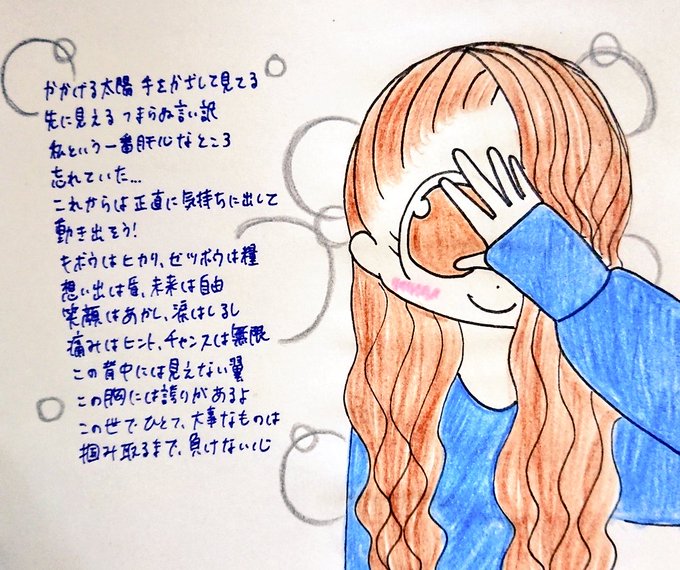 かかげる太陽 手をかざして見てる
先に見える つまらぬ言い訳
私という一番肝心なところ
忘れていた...
これからは正直に気持ちに出して
動き出そう!
キボウはヒカリ、ゼツボウは糧
想い出は盾、未来は自由
笑顔はあかし、涙はしるし
痛みはヒント、チャンスは無限
この背中には見えない翼
この胸には誇りがあるよ
この世でひとつ、大事なものは
掴み取るまで、負けない心